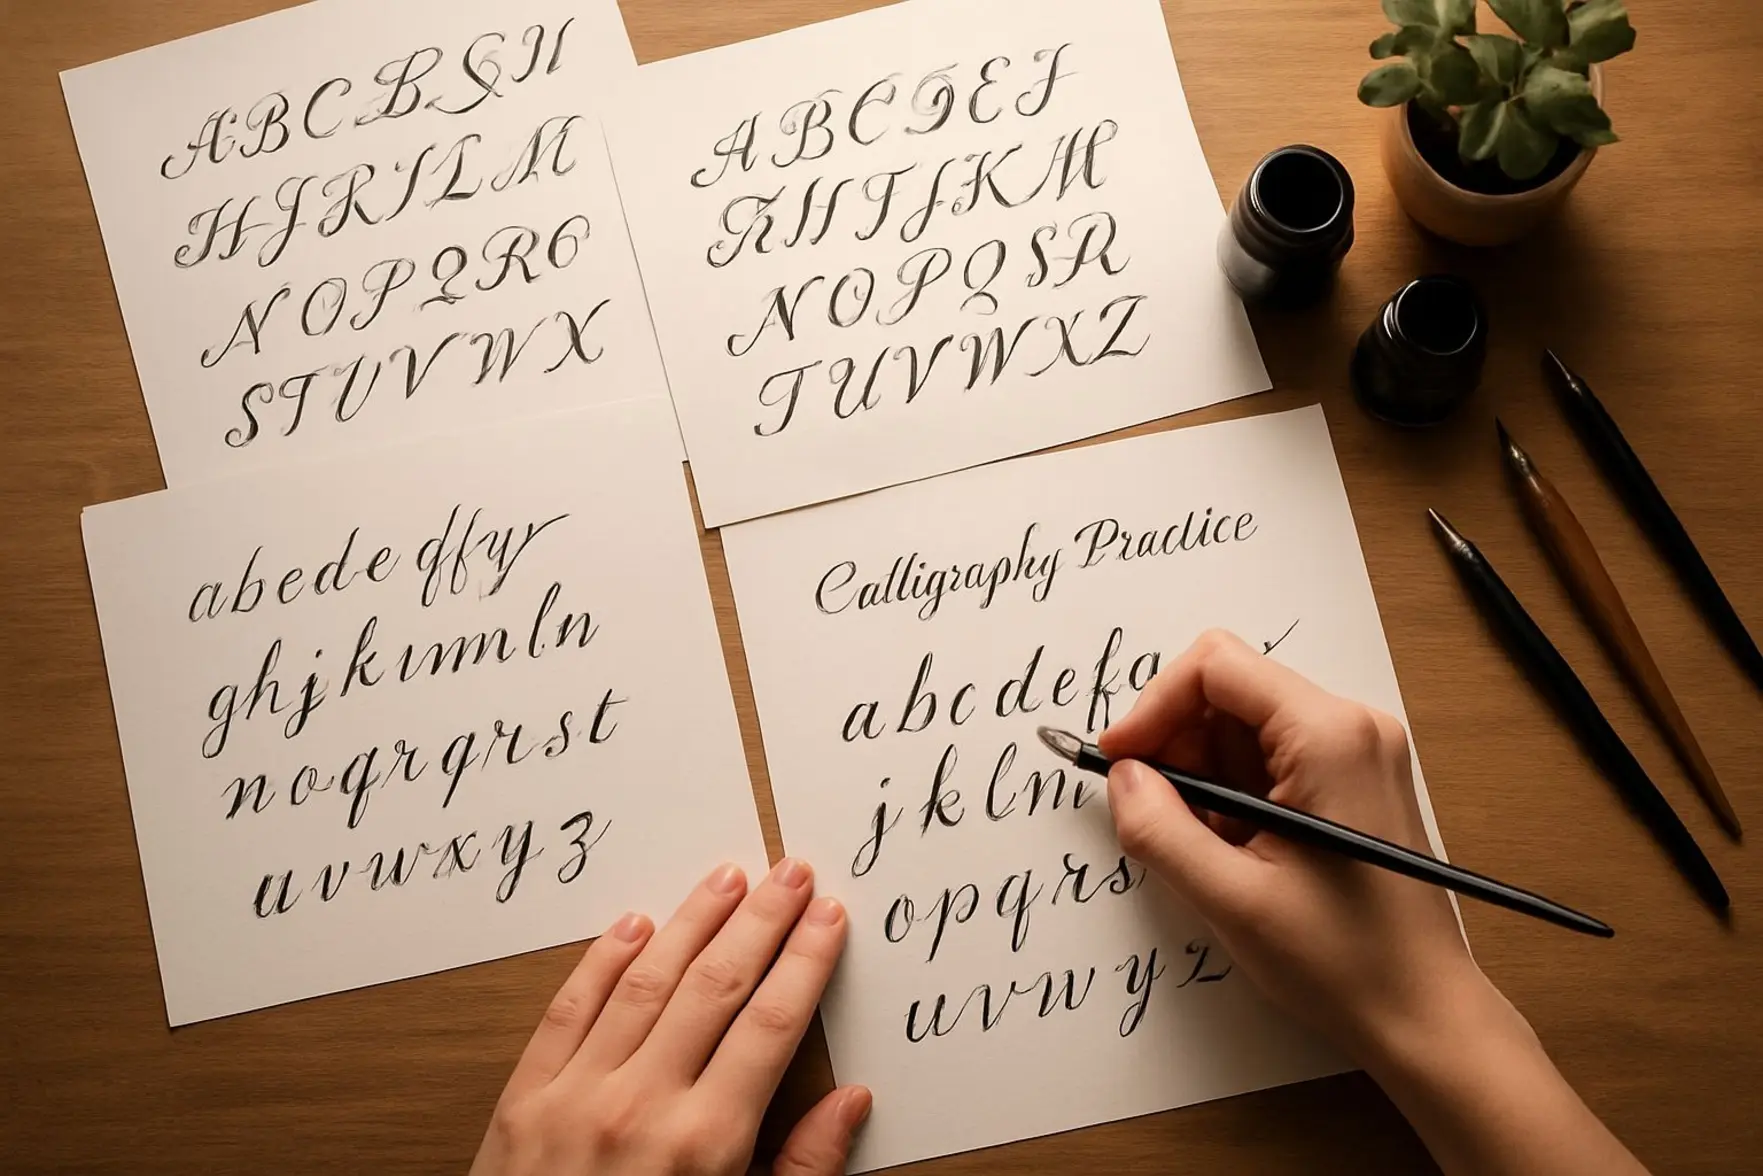 A B C B G H
H J R I L M
N O P Q R O
S T U V W X
A B C D E F
H T J K M
N O P Q S R
T U V W X Z
a b e d e
g h j k l n
n o q r q r s t
u v w x y z
Calligraphy Practice
a b c d e f a
j k l n
o p q r s
u v w y z